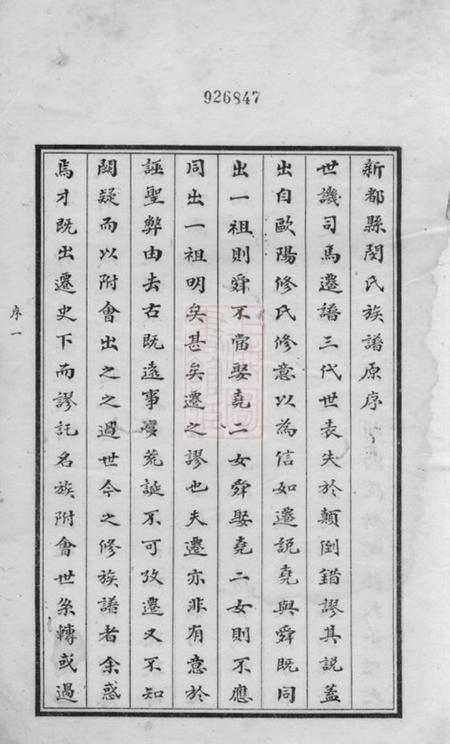 926847
新都縣閔氏族譜原序
世譏司馬遷譜三代世表失於顛倒錯謬其說蓋
出自歐陽修氏修意以為信如遷說堯與舜既同
出一祖則舜不當娶堯二女舜娶堯二女則不應
同出一祖明矣甚矣遷之謬也夫遷亦非有意於
誣聖弊由去古既遠事多荒誕不可攷遷又不知
闕疑而以附會出之之過世今之修族譜者余惑
焉才既出遷史下而謬託名族附會世系轉或過
序一